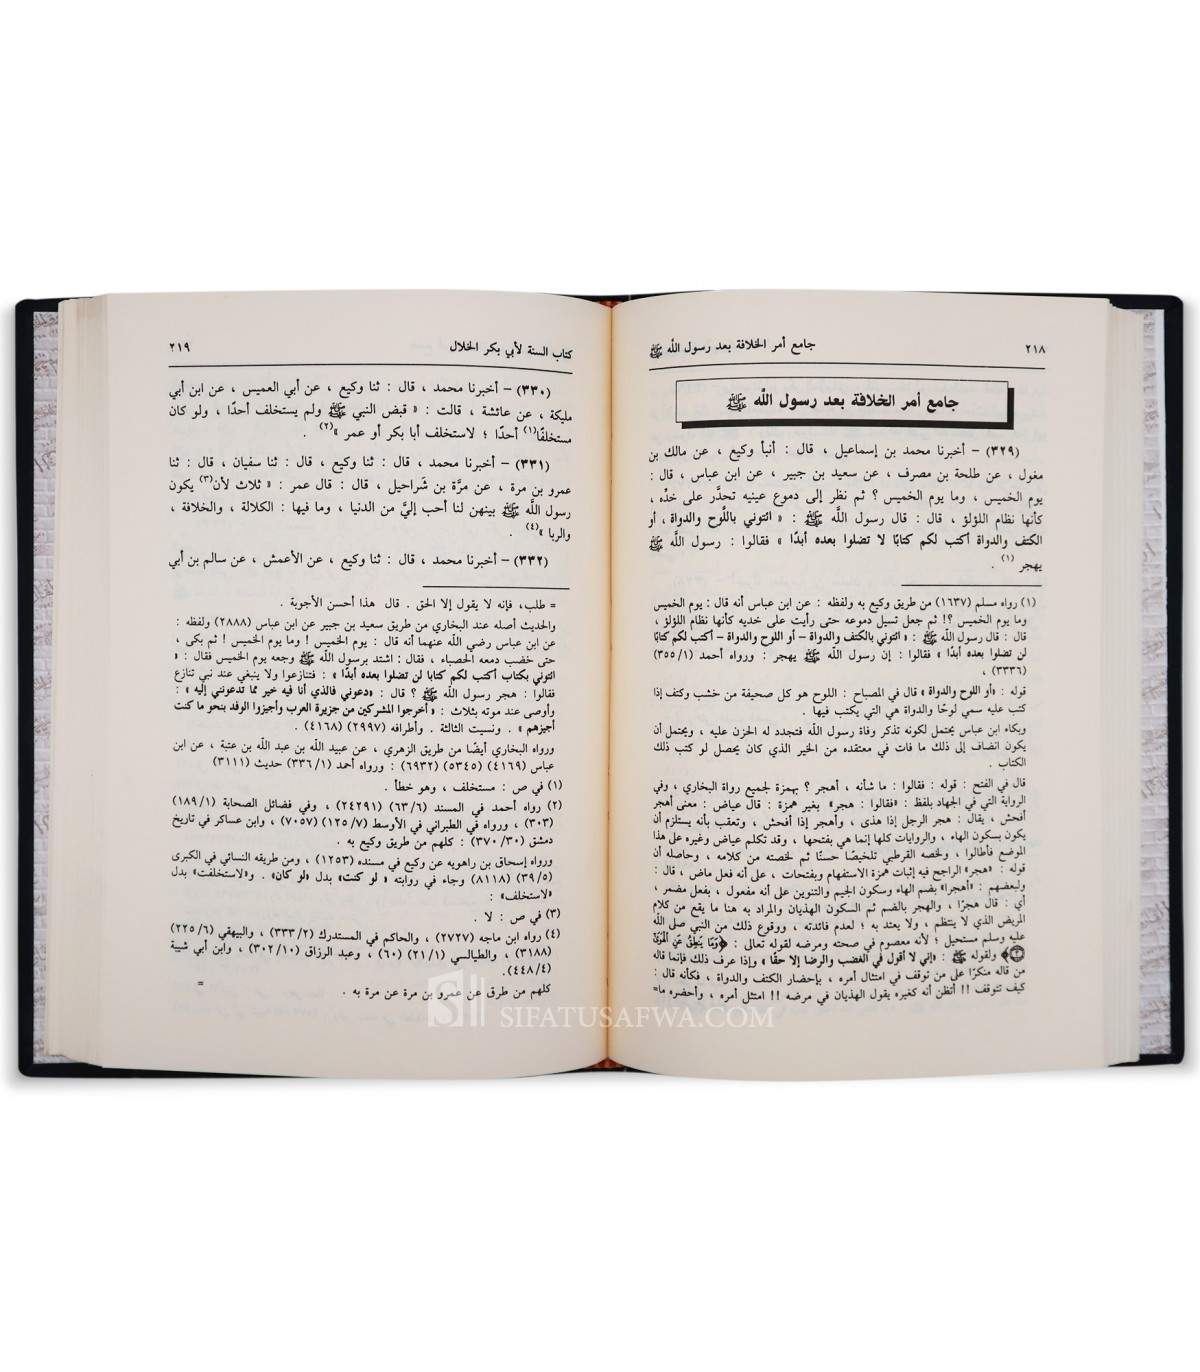 جامع أمر الخلافة بعد رسول اللّه ﷺ ٢١٨
جامع أمر الخلافة بعد رسول اللّه ﷺ
(٣٢٩) – أخبرنا محمد بن إسماعيل ، قال : أنبأ وكيع ، عن مالك بن
مغول ، عن طلحة بن مصرف ، عن سعيد بن جبير ، عن ابن عباس ، قال :
يوم الخميس ، وما يوم الخميس ؟ ثم نظر إلى دموع عينيه تحدَّر على خدِّه ،
كأنها نظام اللؤلؤ ، قال : قال رسول اللَّه ﷺ : « ائتوني باللَّوح والدواة ، أو
الكتف والدواة أكتب لكم كتابًا لا تضلوا بعده أبدًا » فقالوا : رسول اللَّه ﷺ
يهجر (١) .
(١) رواه مسلم (١٦٣٧) من طريق وكيع به ولفظه : عن ابن عباس أنه قال : يوم الخميس
وما يوم الخميس ؟! ثم جعل تسيل دموعه حتى رأيت على خديه كأنها نظام اللؤلؤ ،
قال : قال رسول اللَّه ﷺ : « ائتوني بالكتف والدواة – أو اللوح والدواة – أكتب لكم كتابًا
لن تضلوا بعده أبدًا » فقالوا : إن رسول اللَّه ﷺ يهجر : ورواه أحمد (٣٥٥/١)
(٣٣٣٦) ،
قوله : «أو اللوح والدواة» قال في المصباح : اللوح هو كل صحيفة من خشب وكتف إذا
كتب عليه سمي لوحًا والدواة هي التي يكتب فيها .
وبكاء ابن عباس يحتمل لكونه تذكر وفاة رسول اللَّه فتجدد له الحزن عليه ، ويحتمل أن
يكون انضاف إلى ذلك ما فات في معتقده من الخير الذي كان يحصل لو كتب ذلك
الكتاب .
قال في الفتح : قوله : فقالوا : ما شأنه ، أهجر ؟ بهمزة لجميع رواة البخاري ، وفي
الرواية التي في الجهاد بلفظ : «فقالوا : هجر» بغير همزة : قال عياض : معنى أهجر
أفحش ، يقال : هجر الرجل إذا هذى ، وأهجر إذا أفحش ، وتعقب بأنه يستلزم أن
يكون بسكون الهاء ، والروايات كلها إنما هي بفتحها ، وقد تكلم عياض وغيره على هذا
الموضع فأطالوا ، ولخصه القرطبي تلخيصًا حسنًا ثم لخصته من كلامه ، وحاصله أن
قوله : «هجر» الراجح فيه إثبات همزة الاستفهام وبفتحات ، على أنه فعل ماض ، قال :
ولبعضهم : «أهجرا» بضم الهاء وسكون الجيم والتنوين على أنه مفعول ، بفعل مضمر ،
أي : قال هجرًا ، والهجر بالضم ثم السكون الهذيان والمراد به هنا ما يقع من كلام
المريض الذي لا ينتظم ، ولا يعتد به ؛ لعدم فائدته ، ووقوع ذلك من النبي صلى اللَّه
عليه وسلم مستحيل ؛ لأنه معصوم في صحته ومرضه لقوله تعالى : ﴿وَمَا يَنطِقُ عَنِ الْهَوَىٰ
﴾ ولقوله ﷺ : «إني لا أقول في الغضب والرضا إلا حقًا» وإذا عرف ذلك فإنما قاله
من قاله منكرًا على من توقف في امتثال أمره ، بإحضار الكتف والدواة ، فكأنه قال :
كيف تتوقف !! أتظن أنه كغيره يقول الهذيان في مرضه !! امتثل أمره ، وأحضره ما=
كتاب السنة لأبي بكر الخلال ٢١٩
(٣٣٠) – أخبرنا محمد ، قال : ثنا وكيع ، عن أبي العميس ، عن ابن أبي
مليكة ، عن عائشة ، قالت : « قبض النبي ﷺ ولم يستخلف أحدًا ، ولو كان
مستخلفًا(١) أحدًا ؛ لاستخلف أبا بكر أو عمر »(٢) .
(٣٣١) – أخبرنا محمد ، قال : ثنا وكيع ، قال : ثنا سفيان ، قال : ثنا
عمرو بن مرة ، عن مرَّة بن شَراحيل ، قال : قال عمر : « ثلاث لأن(٣) يكون
رسول اللَّه ﷺ بينهن لنا أحب إليَّ من الدنيا ، وما فيها : الكلالة ، والخلافة ،
والربا »(٤) .
(٣٣٢) – أخبرنا محمد ، قال : ثنا وكيع ، عن الأعمش ، عن سالم بن أبي
= طلب، فإنه لا يقول إلا الحق . قال هذا أحسن الأجوبة .
والحديث أصله عند البخاري من طريق سعيد بن جبير عن ابن عباس (٢٨٨٨) ولفظه :
عن ابن عباس رضي اللَّه عنهما أنه قال : يوم الخميس ! وما يوم الخميس ! ثم بكى ،
حتى خضب دمعه الحصباء ، فقال : اشتد برسول اللَّه ﷺ وجعه يوم الخميس فقال : «
ائتوني بكتاب أكتب لكم كتابا لن تضلوا بعده أبدًا » : فتنازعوا ولا ينبغي عند نبي تنازع
فقالوا : هجر رسول اللَّه ﷺ ؟ قال : «دعوني فالذي أنا فيه خير مما تدعونني إليه » :
وأوصى عند موته بثلاث : « أخرجوا المشركين من جزيرة العرب وأجيزوا الوفد بنحو ما كنت
أجيزهم » . ونسيت الثالثة . وأطرافه (٢٩٩٧) (٤١٦٨) .
ورواه البخاري أيضًا من طريق الزهري ، عن عبيد اللَّه بن عبد اللَّه بن عتبة ، عن ابن
عباس (٤١٦٩) (٥٣٤٥) (٦٩٣٢) : ورواه أحمد (٣٣٦/١) حديث (٣١١١)
(١) في ص : مستخلف ، وهو خطأ .
(٢) رواه أحمد في المسند (٦٣/٦) (٢٤٢٩١) ، وفي فضائل الصحابة (١٨٩/١)
(٣٠٣) ، ورواه في الطبراني في الأوسط (١٢٥/٧) (٧٠٥٧) ، وابن عساكر في تاريخ
دمشق (٣٧٠/٣٠) : كلهم من طريق وكيع به .
ورواه إسحاق بن راهويه عن وكيع في مسنده (١٢٥٣) ، ومن طريقه النسائي في الكبرى
(٣٩/٥) (٨١١٨) وجاء في روايته « لو كنت» بدل «لو كان» . و«لاستخلفت» بدل
«لاستخلف» :
(٣) في ص : لا .
(٤) رواه ابن ماجه (٢٧٢٧) ، والحاكم في المستدرك (٣٣٣/٢) ، والبيهقي (٢٢٥/٦)
(٣١٨٨) ، والطيالسي (٢١/١) (٦٠) ، وعبد الرزاق (٣٠٢/١٠) ، وابن أبي شيبة
(٤٤٨/٤).
كلهم من طرق عن عمرو بن مرة عن مرة به . =
SIFATUSAFWA.COM